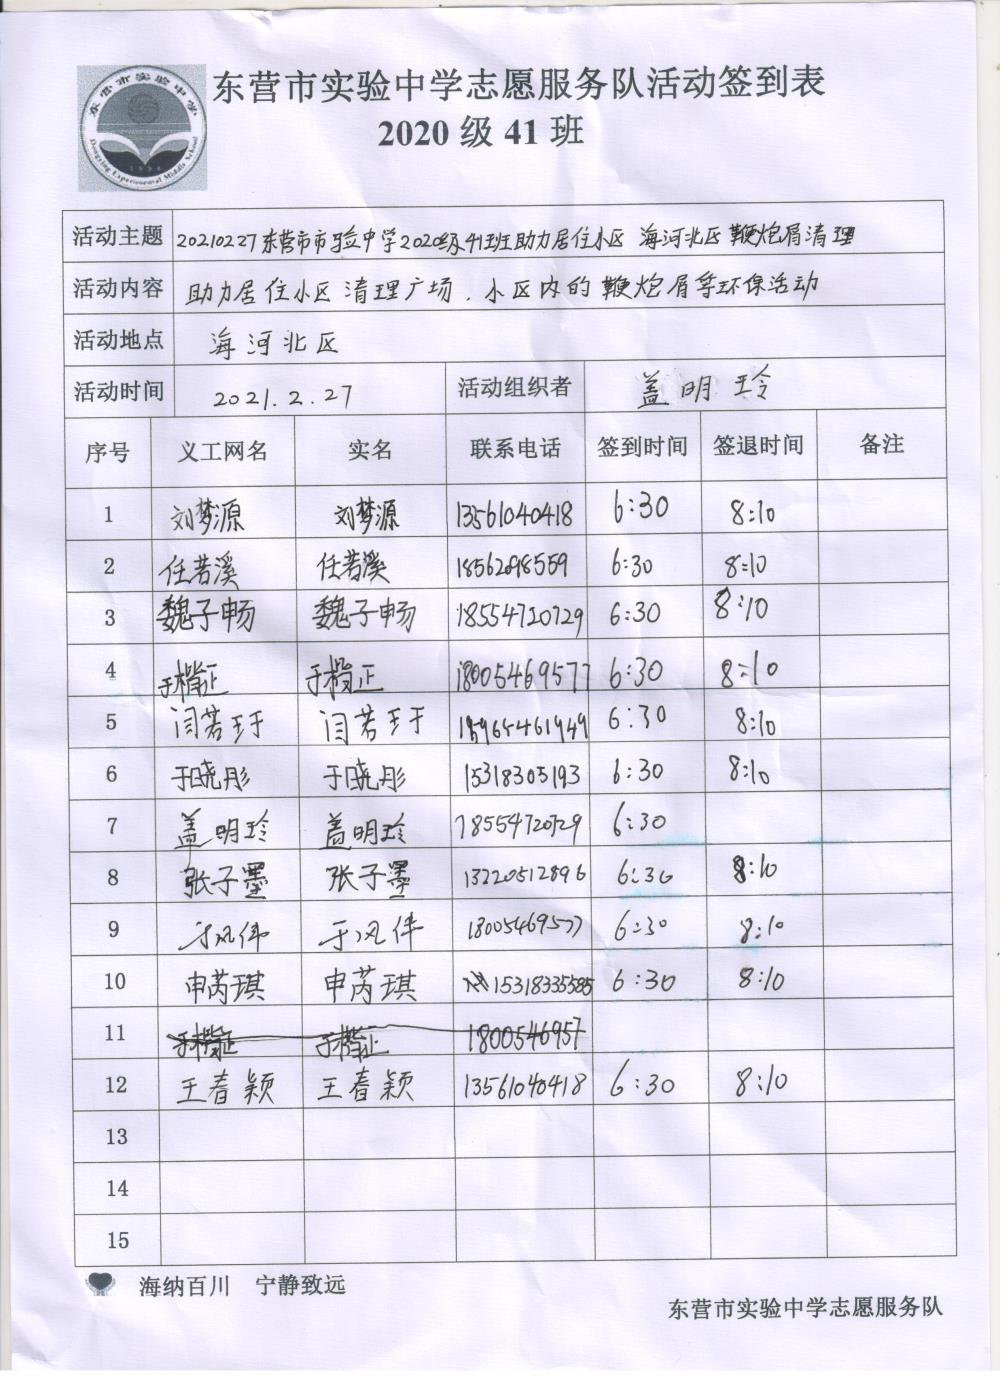 东营市实验中学
Dongying Experimental Middle School
东营市实验中学志愿服务队活动签到表
2020 级 41 班
活动主题 20210227东营市市验中学2020级41班助力居住小区 海河北区鞭炮屑清理
活动内容 助力居住小区清理广场、小区内的鞭炮屑等环保活动
活动地点 海河北区
活动时间 2021.2.27 活动组织者 盖明玲
序号 义工网名 实名 联系电话 签到时间 签退时间 备注
1 刘梦源 刘梦源 13561040418 6:30 8:10
2 任若溪 任若溪 18562098559 6:30 8:10
3 魏子畅 魏子畅 18554720729 6:30 8:10
4 于楷正 于楷正 18005469577 6:30 8:10
5 闫若玗 闫若玗 6:30 8:10
6 于晓彤 于晓彤 15318305193 6:30 8:10
7 盖明玲 盖明玲 18554720729 6:30
8 张子墨 张子墨 13220512896 6:30 8:10
9 于风伟 于风伟 18005469577 6:30 8:10
10 申芮琪 申芮琪 15318335585 6:30 8:10
11 于楷正 于楷正 1800546957
12 王春颖 王春颖 13561040418 6:30 8:10
13
14
15
海纳百川 宁静致远
东营市实验中学志愿服务队